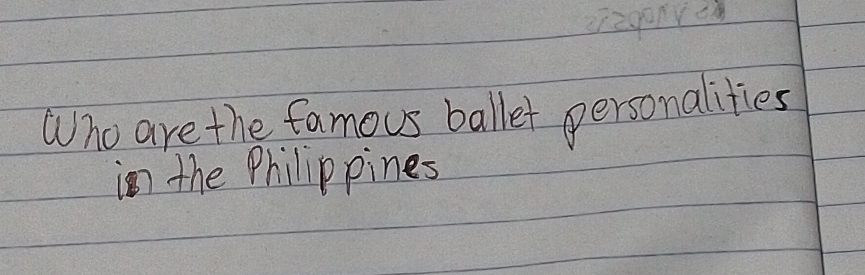 Who are the famous ballet personalities
in the Philippines